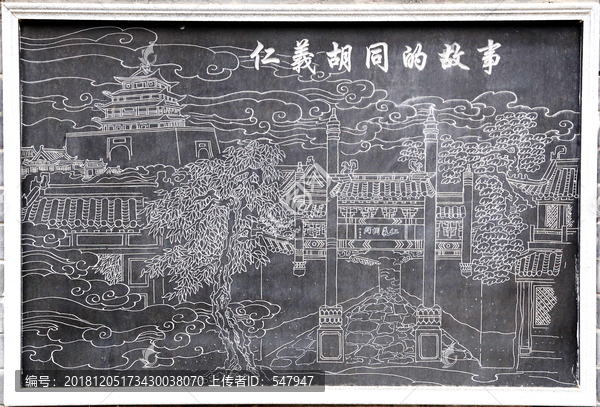 仁義胡同的故事
仁義胡同
编号：20181205173430038070 上传者ID：547947